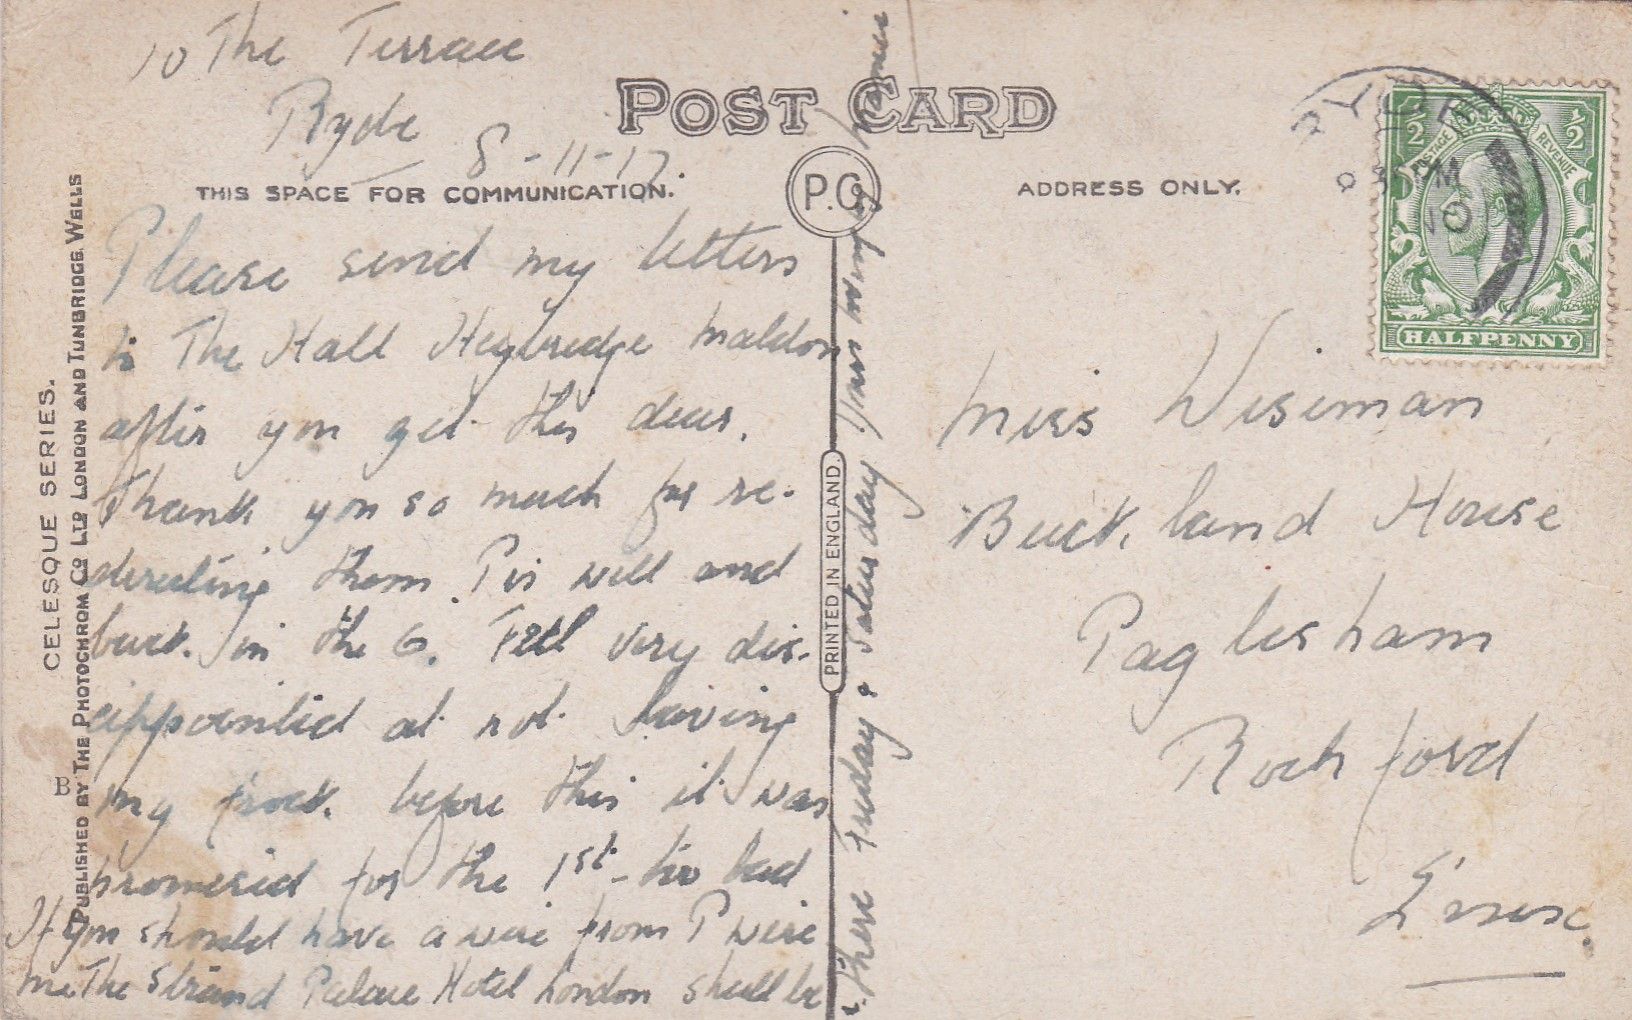 10 The Terrace
Ryde
8-11-17
POST CARD
THIS SPACE FOR COMMUNICATION.
P.C.
ADDRESS ONLY.
Please send my letters
to The Hall Heybridge Maldon
after you get this dear.
Thank you so much for re-
directing them. P is well and
back in the 6. Feel very dis-
appointed at not having
my frock before this it was
promised for the 1st - too bad
If you should have a wire from P wire
me The Strand Palace Hotel London shall be
there Friday & Saturday. Yours
Miss Wiseman
Buckland House
Paglesham
Rochford
Essex.
CELESQUE SERIES.
PUBLISHED BY THE PHOTOCHROM CO LTD LONDON AND TUNBRIDGE WELLS
B
PRINTED IN ENGLAND.
RYDE
1/2 1/2
POSTAGE REVENUE
HALFPENNY